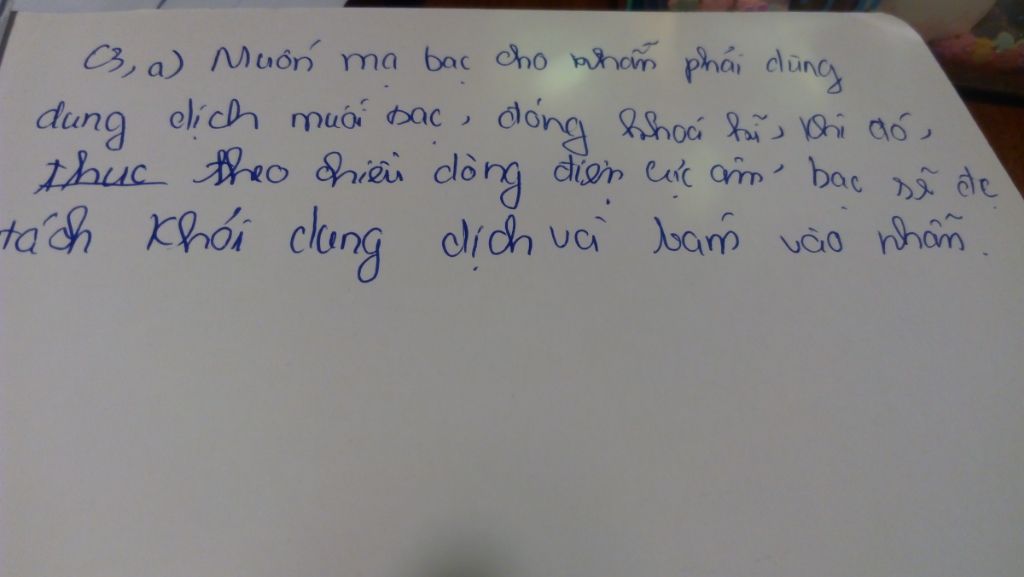 C3, a) Muốn mạ bạc cho nhẫn phải dùng
dung dịch muối bạc, đóng khoá k, khi đó,
thuc theo chiều dòng điện cực âm, bạc sẽ đc
tách khỏi dung dịch và bám vào nhẫn.